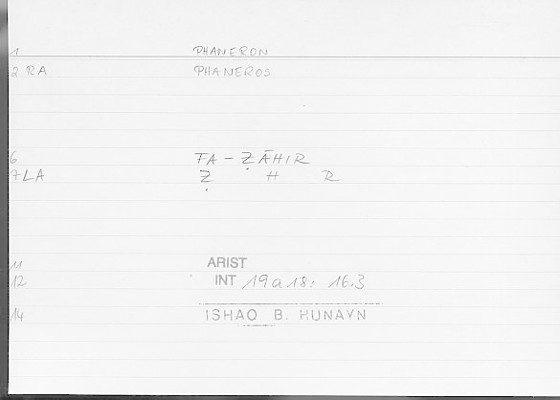 1 PHANERON
2 RA PHANEROS
6 FA - ẒĀHIR
7LA Ẓ H R
11 ARIST
12 INT 19a18: 16.3
14 ISHAQ B. HUNAYN